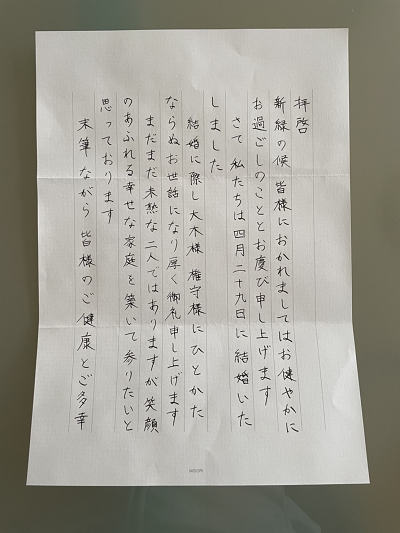 拝啓
新緑の候 皆様におかれましてはお健やかに
お過ごしのこととお慶び申し上げます
さて 私たちは四月二十九日に結婚いた
しました
結婚に際し大木様 権守様にひとかた
ならぬお世話になり厚く御礼申し上げます
まだまだ未熟な二人ではありますが笑顔
のあふれる幸せな家庭を築いて参りたいと
思っております
末筆ながら 皆様のご健康とご多幸
MIDORI